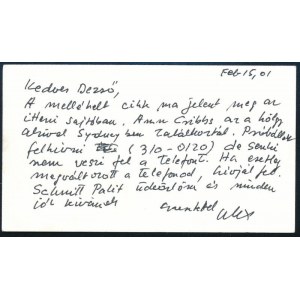 Feb 15, 01
Kedves Dezső,
A mellékelt cikk ma jelent meg az
itteni sajtóban. Ann Cribbs az a hölgy
akivel Sydneyben találkoztál. Próbállak
felhívni (310-0120) de senki
nem veszi fel a telefont. Ha esetleg
megváltozott a telefonod, hívjál fel.
Schmitt Palit üdvözlöm és minden
jót kívánok
szeretettel
Alex